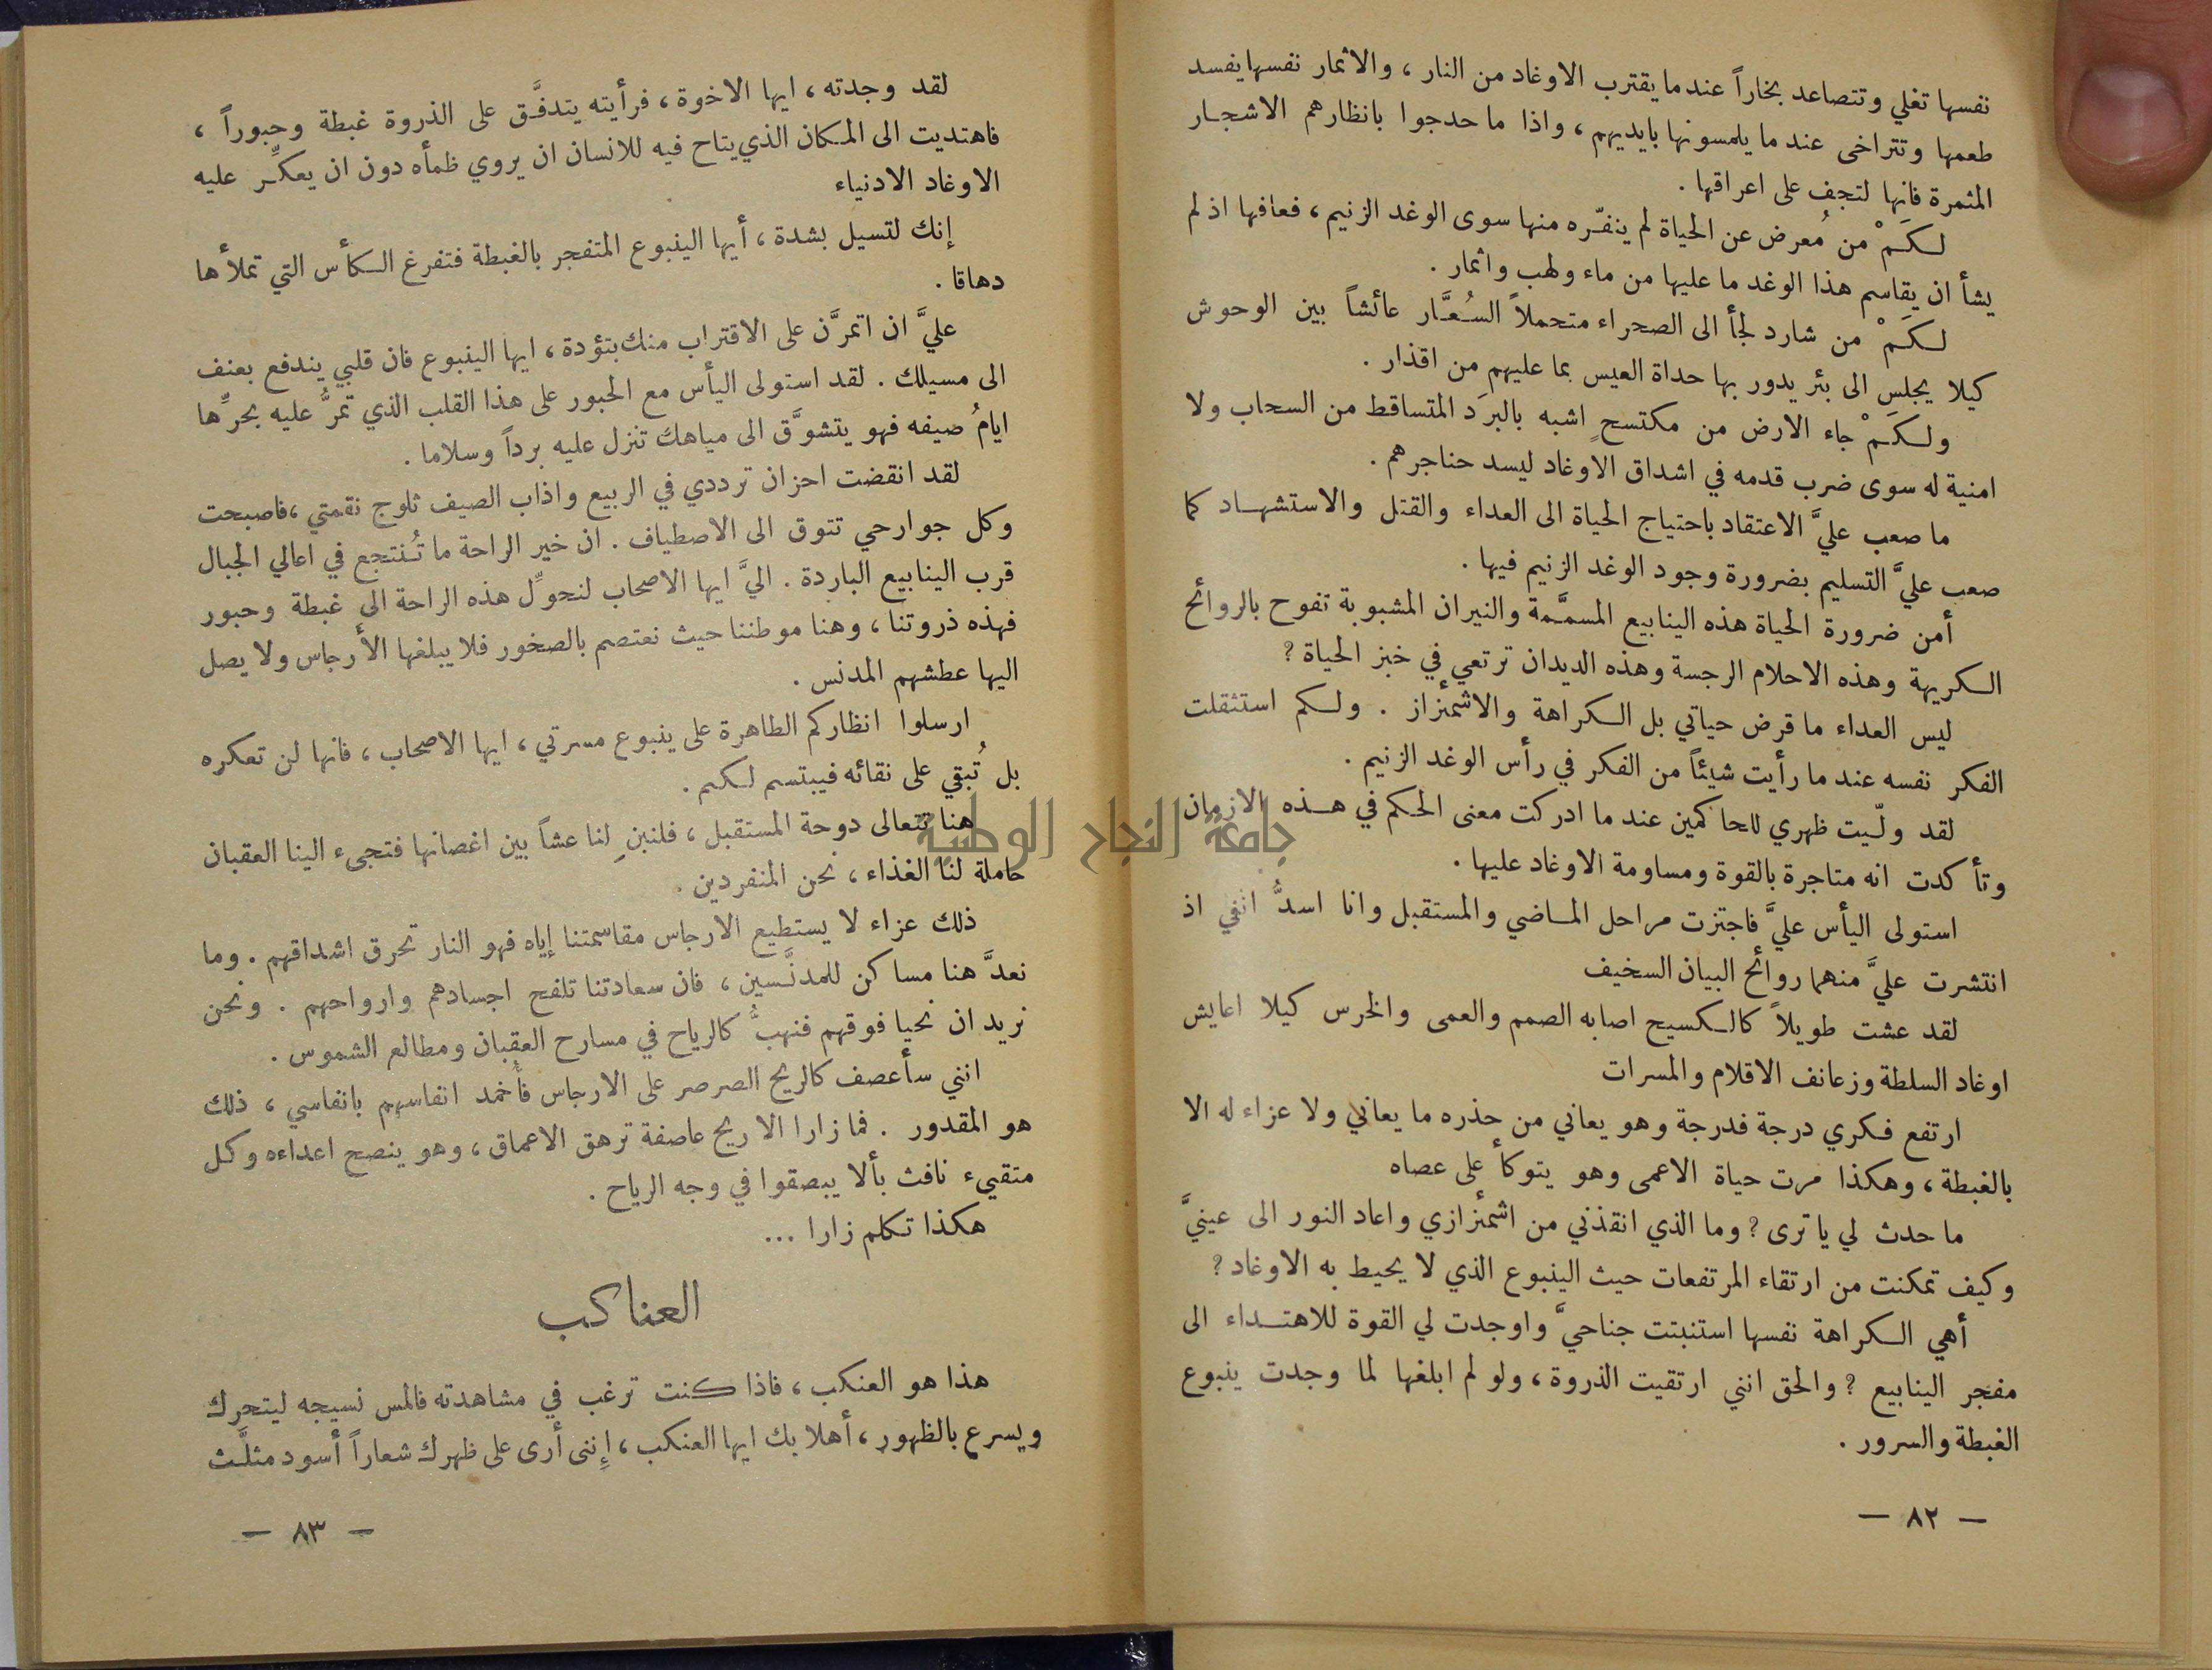 نفسها تغلي وتتصاعد بخاراً عند ما يقترب الاوغاد من النار ، والاثمار نفسها يفسد
طعمها وتتراخى عند ما يلمسونها بايديهم ، واذا ما حدجوا بانظارهم الاشجار
المثمرة فانها لتجف على اعراقها .
لكَمْ من مُعرض عن الحياة لم ينفّره منها سوى الوغد الزنيم ، فعافها اذ لم
يشأ ان يقاسم هذا الوغد ما عليها من ماء ولهب واثمار .
لكَمْ من شارد لجأ الى الصحراء متحملاً السُعَّار عائشاً بين الوحوش
كيلا يجلس الى بئر يدور بها حداة العيس بما عليهم من اقذار .
ولكَمْ جاء الارض من مكتسحٍ اشبه بالبرَد المتساقط من السحاب ولا
امنية له سوى ضرب قدمه في اشداق الاوغاد ليسد حناجرهم .
ما صعب عليَّ الاعتقاد باحتياج الحياة الى العداء والقتل والاستشهاد كما
صعب عليَّ التسليم بضرورة وجود الوغد الزنيم فيها .
أمن ضرورة الحياة هذه الينابيع المسمَّمة والنيران المشبوبة تفوح بالروائح
الكريهة وهذه الاحلام الرجسة وهذه الديدان ترتعي في خبز الحياة ؟
ليس العداء ما قرض حياتي بل الكراهة والاشمئزاز . ولكم استثقلت
الفكر نفسه عند ما رأيت شيئاً من الفكر في رأس الوغد الزنيم .
لقد ولّيت ظهري للحاكمين عند ما ادركت معنى الحكم في هذه الازمان
وتأكدت انه متاجرة بالقوة ومساومة الاوغاد عليها .
استولى اليأس عليَّ فاجتزت مراحل الماضي والمستقبل وانا اسدُّ انفي اذ
انتشرت عليَّ منهما روائح البيان السخيف
لقد عشت طويلاً كالكسيح اصابه الصمم والعمى والخرس كيلا اعايش
اوغاد السلطة وزعانف الاقلام والمسرات
ارتفع فكري درجة فدرجة وهو يعاني من حذره ما يعاني ولا عزاء له الا
بالغبطة ، وهكذا مرت حياة الاعمى وهو يتوكأ على عصاه
ما حدث لي يا ترى ؟ وما الذي انقذني من اشمئزازي واعاد النور الى عينيَّ
وكيف تمكنت من ارتقاء المرتفعات حيث الينبوع الذي لا يحيط به الاوغاد ؟
أهي الكراهة نفسها استنبتت جناحيَّ واوجدت لي القوة للاهتداء الى
مفجر الينابيع ؟ والحق انني ارتقيت الذروة ، ولو لم ابلغها لما وجدت ينبوع
الغبطة والسرور .
— ٨٢ —
لقد وجدته ، ايها الاخوة ، فرأيته يتدفَّق على الذروة غبطة وحبوراً ،
فاهتديت الى المكان الذي يتاح فيه للانسان ان يروي ظمأه دون ان يعكِّر عليه
الاوغاد الادنياء
إنك لتسيل بشدة ، أيها الينبوع المتفجر بالغبطة فتفرغ الكأس التي تملأها
دهاقا .
عليَّ ان اتمرَّن على الاقتراب منك بتؤدة ، ايها الينبوع فان قلبي يندفع بعنف
الى مسيلك . لقد استولى اليأس مع الحبور على هذا القلب الذي تمرُّ عليه بحرِّها
ايامُ صيفه فهو يتشوَّق الى مياهك تنزل عليه برداً وسلاما .
لقد انقضت احزان ترددي في الربيع واذاب الصيف ثلوج نقمتي ، فاصبحت
وكل جوارحي تتوق الى الاصطياف . ان خير الراحة ما تُنتجع في اعالي الجبال
قرب الينابيع الباردة . اليَّ ايها الاصحاب لنحوِّل هذه الراحة الى غبطة وحبور
فهذه ذروتنا ، وهنا موطننا حيث نعتصم بالصخور فلا يبلغها الأرجاس ولا يصل
اليها عطشهم المدنس .
ارسلوا انظاركم الطاهرة على ينبوع مسرتي ، ايها الاصحاب ، فانها لن تعكره
بل تُبقي على نقائه فيبتسم لكم .
هنا تتعالى دوحة المستقبل ، فلنبنِ لنا عشاً بين اغصانها فتجيء الينا العقبان
حاملة لنا الغذاء ، نحن المنفردين .
ذلك عزاء لا يستطيع الارجاس مقاسمتنا إياه فهو النار تحرق اشداقهم . وما
نعدَّ هنا مساكن للمدنَّسين ، فان سعادتنا تلفح اجسادهم وارواحهم . ونحن
نريد ان نحيا فوقهم فنهبُّ كالرياح في مسارح العقبان ومطالع الشموس .
انني سأعصف كالريح الصرصر على الارجاس فأخمد انفاسهم بانفاسي ، ذلك
هو المقدور . فما زارا الا ريح عاصفة ترهق الاعماق ، وهو ينصح اعداءه وكل
متقيىء نافث بألا يبصقوا في وجه الرياح .
هكذا تكلم زارا ...
العناكب
هذا هو العنكب ، فاذا كنت ترغب في مشاهدته فالمس نسيجه ليتحرك
ويسرع بالظهور ، أهلا بك ايها العنكب ، إنني أرى على ظهرك شعاراً أسود مثلَّث
— ٨٣ —
جامعة النجاح الوطنية